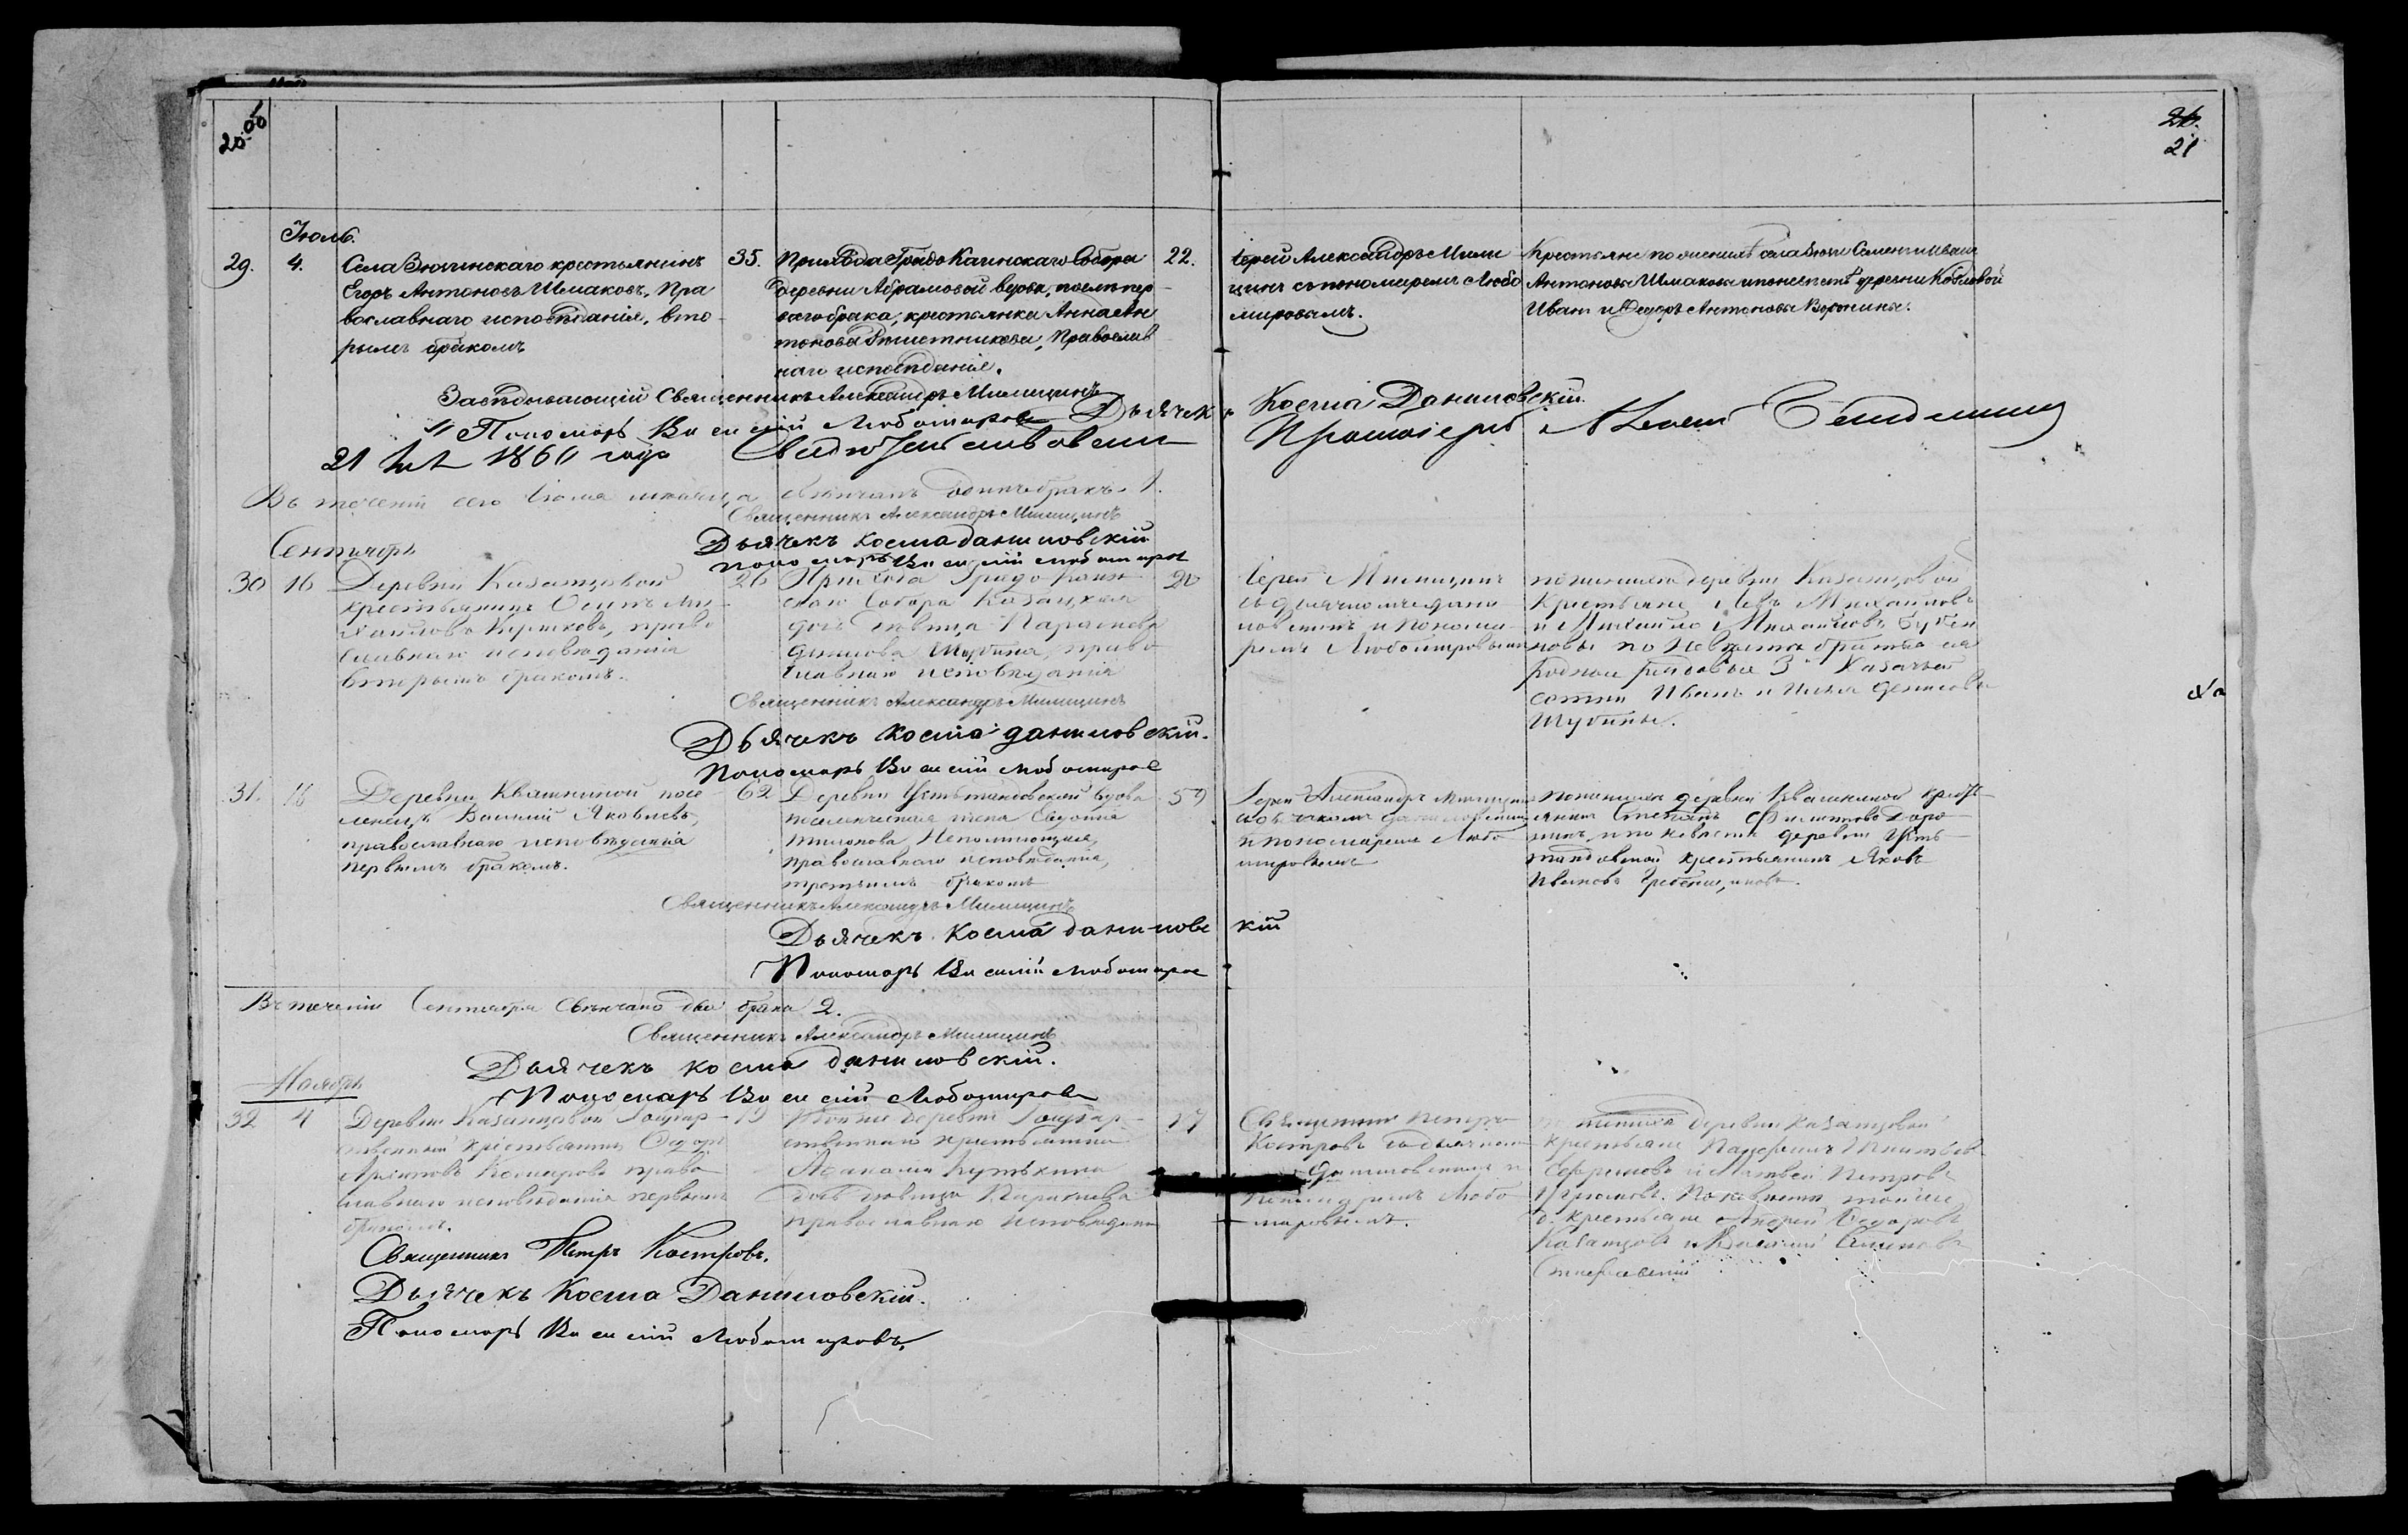 20.
21
Іюль.
29. 4.
Села Зюзинскаго крестьянинъ
Егоръ Антоновъ Шмаковъ, Пра
вославнаго исповѣданія, вто
рымъ бракомъ
35.
Прихода Градо Каинскаго Собора
деревни Абрамовой вдова, послѣ пер
ваго брака, крестьянка Анна Ан
тонова Православ
наго исповѣданія.
22.
Іерей Александръ Мили
цинъ съ пономаремъ Любо
мировымъ.
Крестьяне по женихѣ села Зюзи Семенъ и Иванъ
Антоновы Шмаковы и по невѣстѣ деревни
Иванъ и Ѳедоръ Антоновы Воронины.
Завѣдывающій Священникъ Александръ Милицинъ
Дьячекъ Косма Даниловскій.
Пономарь Василій Любомировъ
21 1860 года Свидѣтельствовалъ Протоіерей
Въ теченіи сего Іюля мѣсяца свѣнчанъ одинъ бракъ. 1.
Священникъ Александръ Милицинъ
Дьячекъ Косма Даниловскій
Пономарь Василій Любомировъ
Сентябрь
30 16
Деревни Казанцовой
крестьянинъ Осипъ Ми
хайловъ право
славнаго исповѣданія
вторымъ бракомъ.
26
Прихода Градо Каин
скаго Собора Казацкая
дочь дѣвица Параскева
Денисова Шубина, право
славнаго исповѣданія
20
Іерей Милицинъ
съ дьячкомъ Дани
ловскимъ и Понома
ремъ Любомировымъ
по женихѣ деревни Казанцовой
крестьяне Левъ Михайловъ
и Михайло Михайловъ
по невѣстѣ братья ея
родные рядовые 3й Казачьей
сотни Иванъ и Илья Денисовы
Шубины.
Священникъ Александръ Милицинъ
Дьячекъ Косма Даниловскій.
Пономарь Василій Любомировъ
31. 18
Деревни Квашниной посе
ленецъ Василій Яковлевъ,
православнаго исповѣданія
первымъ бракомъ.
62
Деревни Устьтандовской вдова
поселенческая жена
Непомнющая,
православнаго исповѣданія,
третьимъ бракомъ
59
Іерей Александръ Милицинъ
съ дьячкомъ Даниловскимъ
и пономаремъ Любо
мировымъ
по женихѣ деревни Квашниной кресть
янинъ Степанъ Доро
нинъ, и по невѣстѣ деревни Усть
тандовской крестьянинъ Яковъ
Ивановъ Гребенщиковъ.
Священникъ Александръ Милицинъ
Дьячекъ Косма Даниловскій
Пономарь Василій Любомировъ
Въ теченіи Сентября свѣнчано два брака 2.
Священникъ Александръ Милицинъ
Дьячекъ Косма Даниловскій.
Пономарь Василій Любомировъ
Ноябрь
32 4
Деревни Казанцовой Государ
ственный крестьянинъ Ѳедоръ
Комаровъ право
славнаго исповѣданія первымъ
бракомъ.
19
Той же деревни Государ
ственнаго крестьянина
Аѳанасія
дочь дѣвица Параскева
православнаго исповѣданія
17
Священникъ Петръ
Костровъ съ дьячкомъ
Даниловскимъ и
Пономаремъ Любо
мировымъ.
деревни Казанцовой
крестьяне
и Матвей Петровъ
По невѣстѣ той же
д. крестьяне Андрей Ѳедоровъ
Казанцовъ и Василій Семеновъ
Священникъ Петръ Костровъ.
Дьячекъ Косма Даниловскій.
Пономарь Василій Любомировъ.